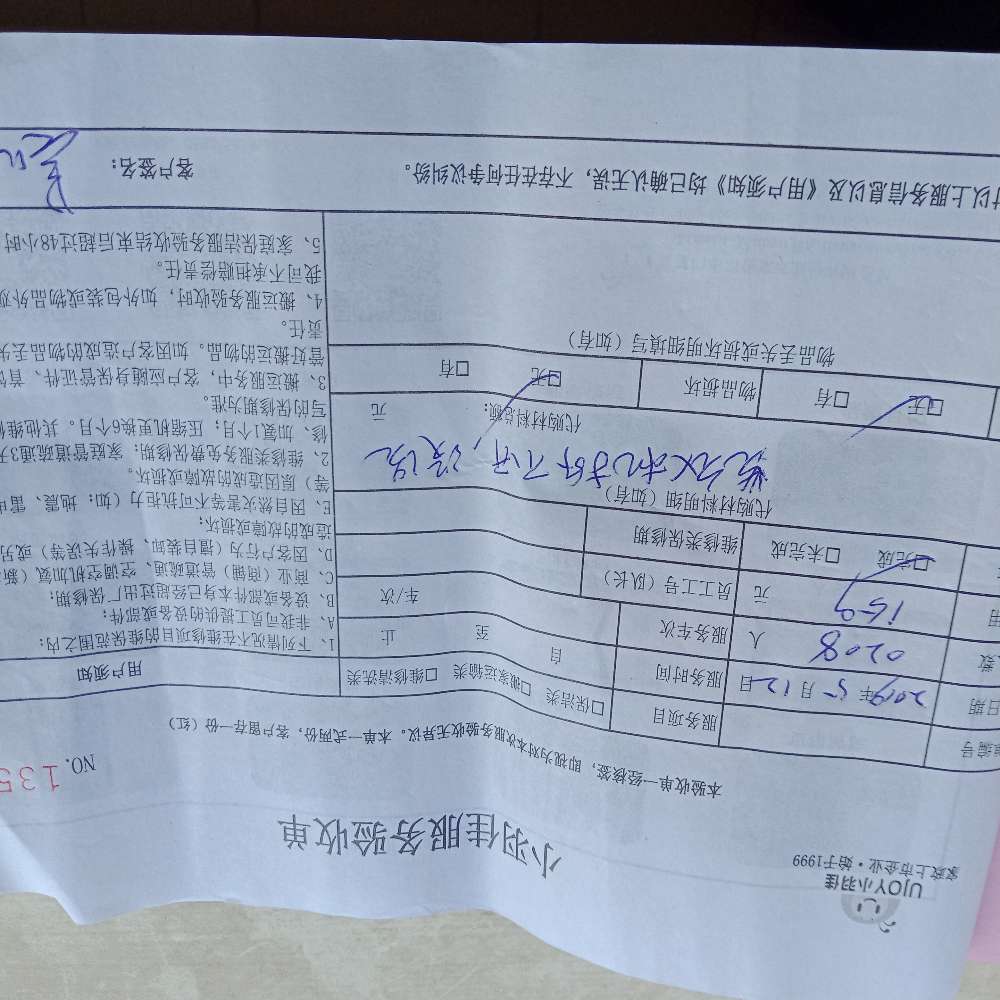 UJOY小羽佳
家政上市企业·始于1999
小羽佳服务验收单
NO. 135
本验收单一经核签，即视为对本次服务验收无异议。本单一式两份，客户留存一份（红）
编号
服务项目
□保洁类 □搬家运输类 □维修清洗类
用户须知
日期
2019年5月12日
服务时间
自 至 止
数
0208 人
服务车次
车/次
用
159 元
员工工号（队长）
□完成 □未完成
维修类保修期
代购材料明细（如有）
代购材料总额： 元
□无 □有
物品损坏
□无 □有
物品丢失或损坏明细填写（如有）
1、下列情况不在维修项目的维保范围之内：
A、非我司员工提供的设备或部件；
B、设备或部件本身已经超过出厂保修期；
C、商业（商铺）管道疏通、空调空机加氨（新
D、因客户行为（擅自装卸、操作失误等）或另
造成的故障或损坏；
E、因自然灾害等不可抗拒力（如：地震、雷电
等）原因造成的故障或损坏。
2、维修类服务免费保修期：家庭管道疏通3天
修、加氨1个月；压缩机更换6个月。其他维修
写的保修期为准。
3、搬运服务中，客户应随身保管证件、首饰
管好搬运的物品。如因客户造成的物品丢失
责任。
4、搬运服务验收时，如外包装或物品外观
我司不承担赔偿责任。
5、家庭保洁服务验收结束后超过48小时
对以上服务信息以及《用户须知》均已确认无误，不存在任何争议纠纷。
客户签名：